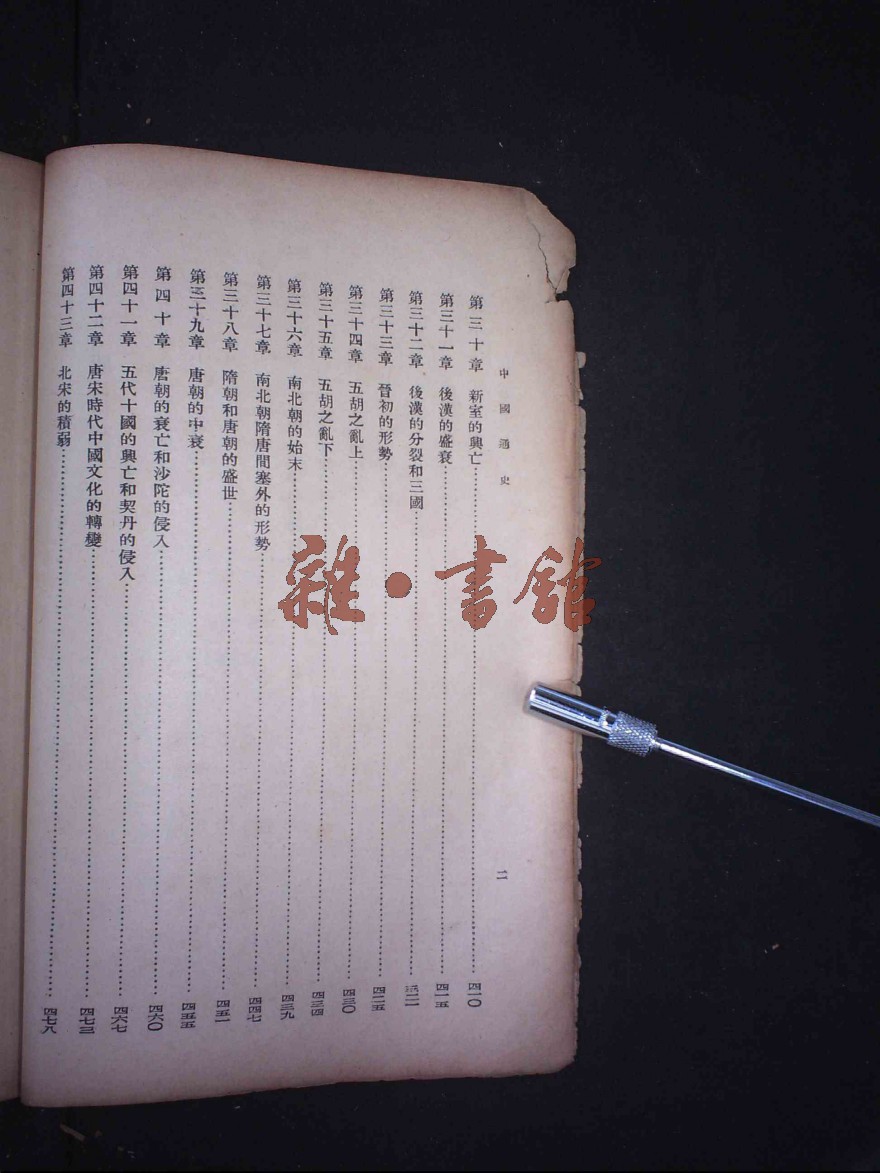 中國通史
二
第三十章 新室的興亡 四一〇
第三十一章 後漢的盛衰 四一五
第三十二章 後漢的分裂和三國
第三十三章 晉初的形勢 四二五
第三十四章 五胡之亂上 四三〇
第三十五章 五胡之亂下 四三四
第三十六章 南北朝的始末 四三九
第三十七章 南北朝隋唐間塞外的形勢 四四七
第三十八章 隋朝和唐朝的盛世 四五一
第三十九章 唐朝的中衰 四五五
第四十章 唐朝的衰亡和沙陀的侵入 四六〇
第四十一章 五代十國的興亡和契丹的侵入 四六七
第四十二章 唐宋時代中國文化的轉變 四七三
第四十三章 北宋的積弱 四七八
雜·書館